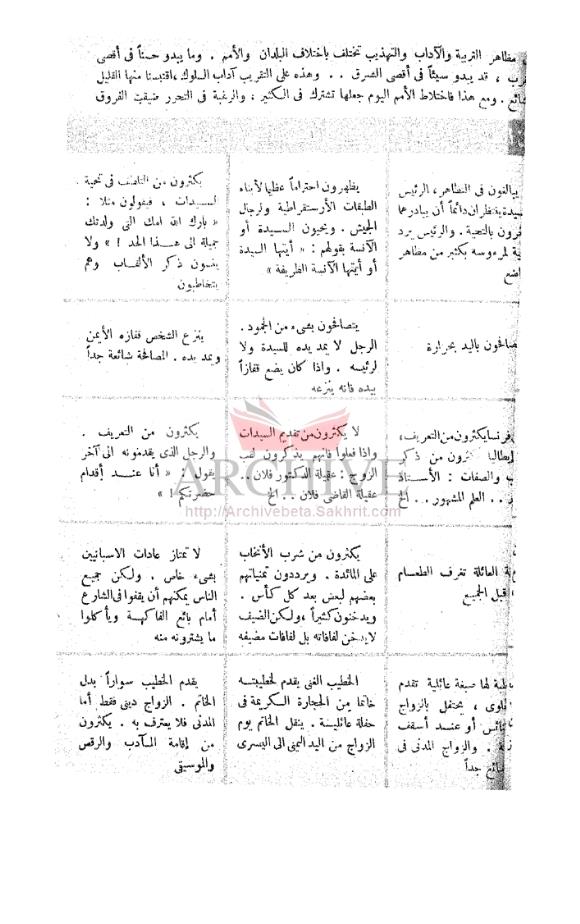 مظاهر التربية والآداب والتهذيب تختلف باختلاف البلدان والأمم . وما يبدو حسناً فى أقصى
، قد يبدو سيئاً فى أقصى الشرق . . وهذه على التقريب آداب السلوك ، اقتبسنا منها القليل
. ومع هذا فاختلاط الأمم اليوم جعلها تشترك فى الكثير ، والرغبة فى التحرر ضيقت الفروق
يبالغون فى التظاهر ، الرئيس
ينتظران دائماً أن يبادرهما
بالتحية . والرئيس يرد
لمرءوسه بكثير من مظاهر
يظهرون احتراماً عظيماً لأبناء
الطبقات الأرستقراطية ولرجال
الجيش . ويحيون السيدة أو
الآنسة بقولهم : « أيتها السيدة
أو أيتها الآنسة الظريفة »
يكثرون من التلطف فى تحية
السيدات ، فيقولون مثلا :
« بارك الله أمك التى ولدتك
جميلة الى هذا الحد ! » ولا
ينسون ذكر الألقاب وهم
يتخاطبون
باليد بحرارة
يتصافحون بشىء من الجمود .
الرجل لا يمد يده للسيدة ولا
لرئيسه . واذا كان يضع قفازاً
بيده فانه ينزعه
ينزع الشخص قفازه الأيمن
ويمد يده . المصافحة شائعة جداً
يكثرون من التعريف ،
يكثرون من ذكر
والصفات : الأستاذ
. . العلم المشهور . . الخ
لا يكثرون من تقديم السيدات
واذا فعلوا فانهم يذكرون لقب
الزوج : عقيلة الدكتور فلان . .
عقيلة القاضى فلان . . الخ
يكثرون من التعريف .
والرجل الذى يقدمونه الى آخر
يقول له : « أنا عند أقدام
حضرتكم ! »
ARCHIVE
http://Archivebeta.Sakhrit.com
العائلة تغرف الطعام
قبل الجميع
يكثرون من شرب الأنخاب
على المائدة . ويرددون تمنياتهم
بعضهم لبعض بعد كل كأس .
ويدخنون كثيراً ، ولكن الضيف
لا يدخن لفافاته بل لفافات مضيفه
لا تمتاز عادات الاسبانيين
بشىء خاص . ولكن جميع
الناس يمكنهم أن يقفوا فى الشارع
أمام بائع الفاكهة ويأكلوا
ما يشترونه منه
لها صبغة عائلية تقدم
، يحتفل بالزواج
أو عند أسقف
. والزواج المدنى فى
جداً
الخطيب الغنى يقدم لخطيبته
خاتما من الحجارة الكريمة فى
حفلة عائلية . ينقل الخاتم يوم
الزواج من اليد اليمنى الى اليسرى
يقدم الخطيب سواراً بدل
الخاتم . الزواج دينى فقط أما
المدنى فلا يعترف به . يكثرون
من إقامة المآدب والرقص
والموسيقى